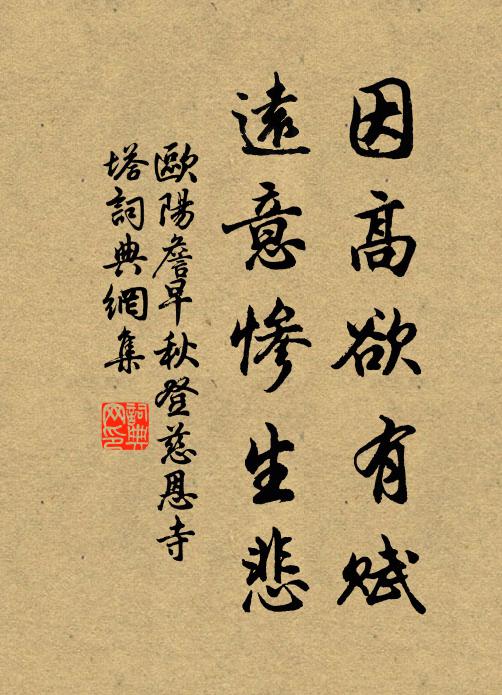 因高欲有賦
遠意慘生悲
歐陽詹早秋登慈恩寺
塔詞典網集
詞典网印